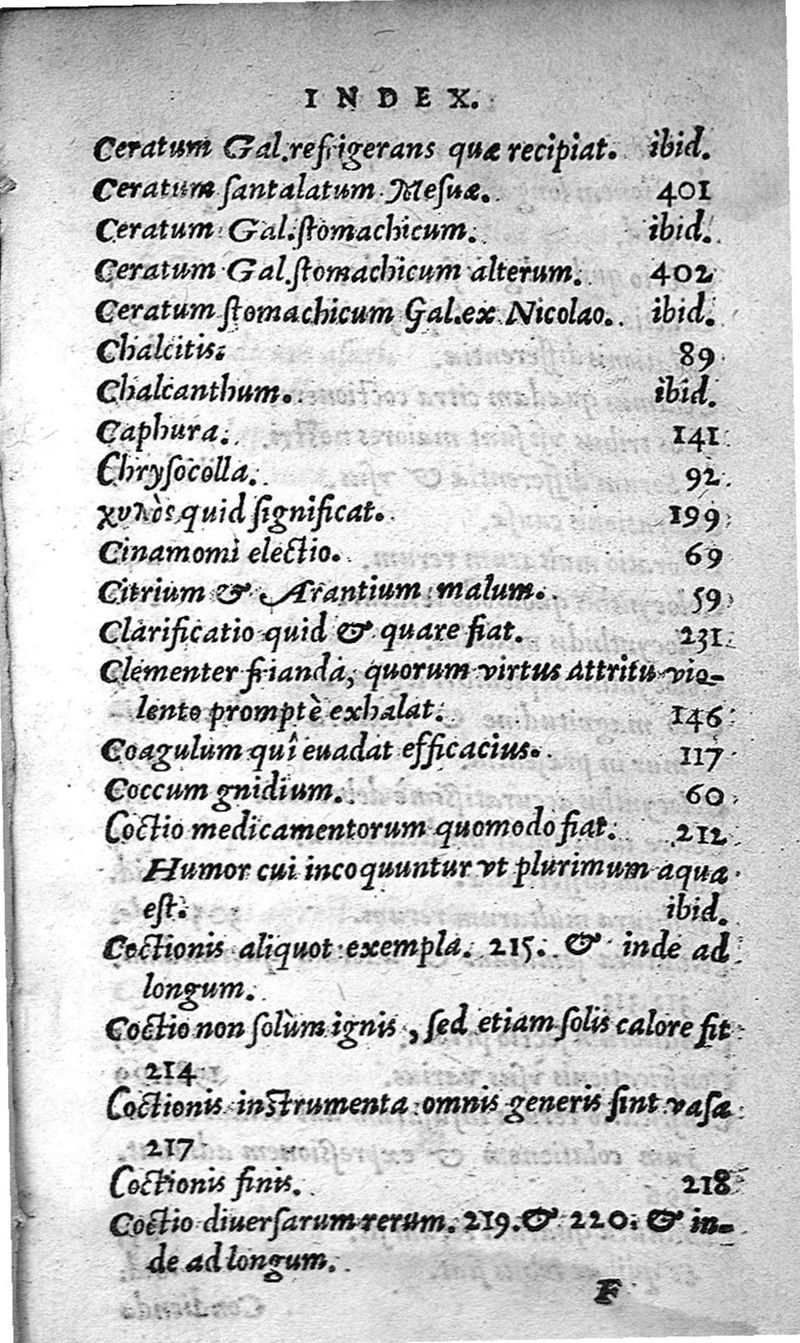 INDEX.
Ceratum Gal.refrigerans quæ recipiat. ibid.
Ceratum ſantalatum Meſuæ. 401
Ceratum Gal.ſtomachicum. ibid.
Ceratum Gal.ſtomachicum alterum. 402
Ceratum ſtomachicum Gal.ex Nicolao. ibid.
Chalcitis. 89
Chalcanthum. ibid.
Caphura. 141
Chryſocolla. 92
χυλὸς quid ſignificat. 199
Cinamomi electio. 69
Citrium & Arantium malum. 59
Clarificatio quid & quare fiat. 231
Clementer frianda, quorum virtus attritu vio-
lento promptè exhalat. 146
Coagulum quî euadat efficacius. 117
Coccum gnidium. 60
Coctio medicamentorum quomodo fiat. 212
Humor cui incoquuntur vt plurimum aqua
eſt. ibid.
Coctionis aliquot exempla. 215. & inde ad
longum.
Coctio non ſolùm ignis, ſed etiam ſolis calore fit
214
Coctionis inſtrumenta omnis generis ſint vaſa
217
Coctionis finis. 218
Coctio diuerſarum rerum. 219. & 220. & in-
de ad longum.
F